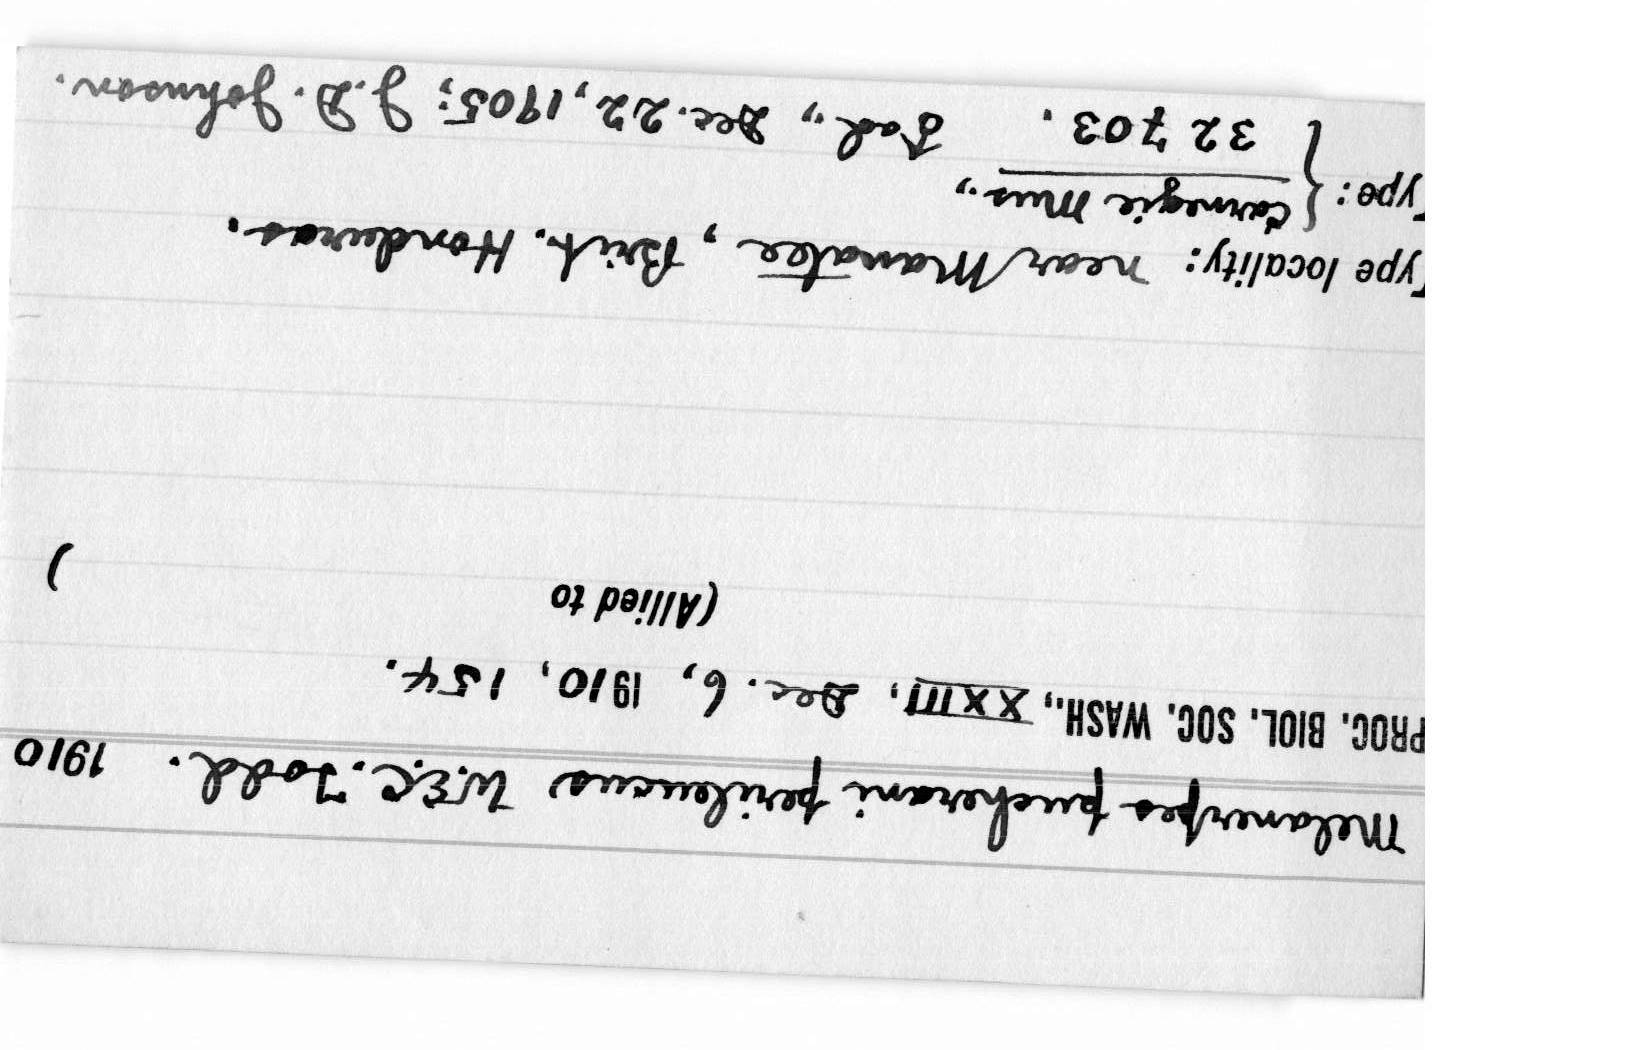 Melanerpes pucherani perileucus W.E.C. Todd. 1910
PROC. BIOL. SOC. WASH., XXIII, Dec. 6, 1910, 154.
(Allied to )
Type locality: near Manatee, Brit. Honduras.
Type: { Carnegie Mus.,
32703. ad., Dec. 22, 1905; J. D. Johnson.